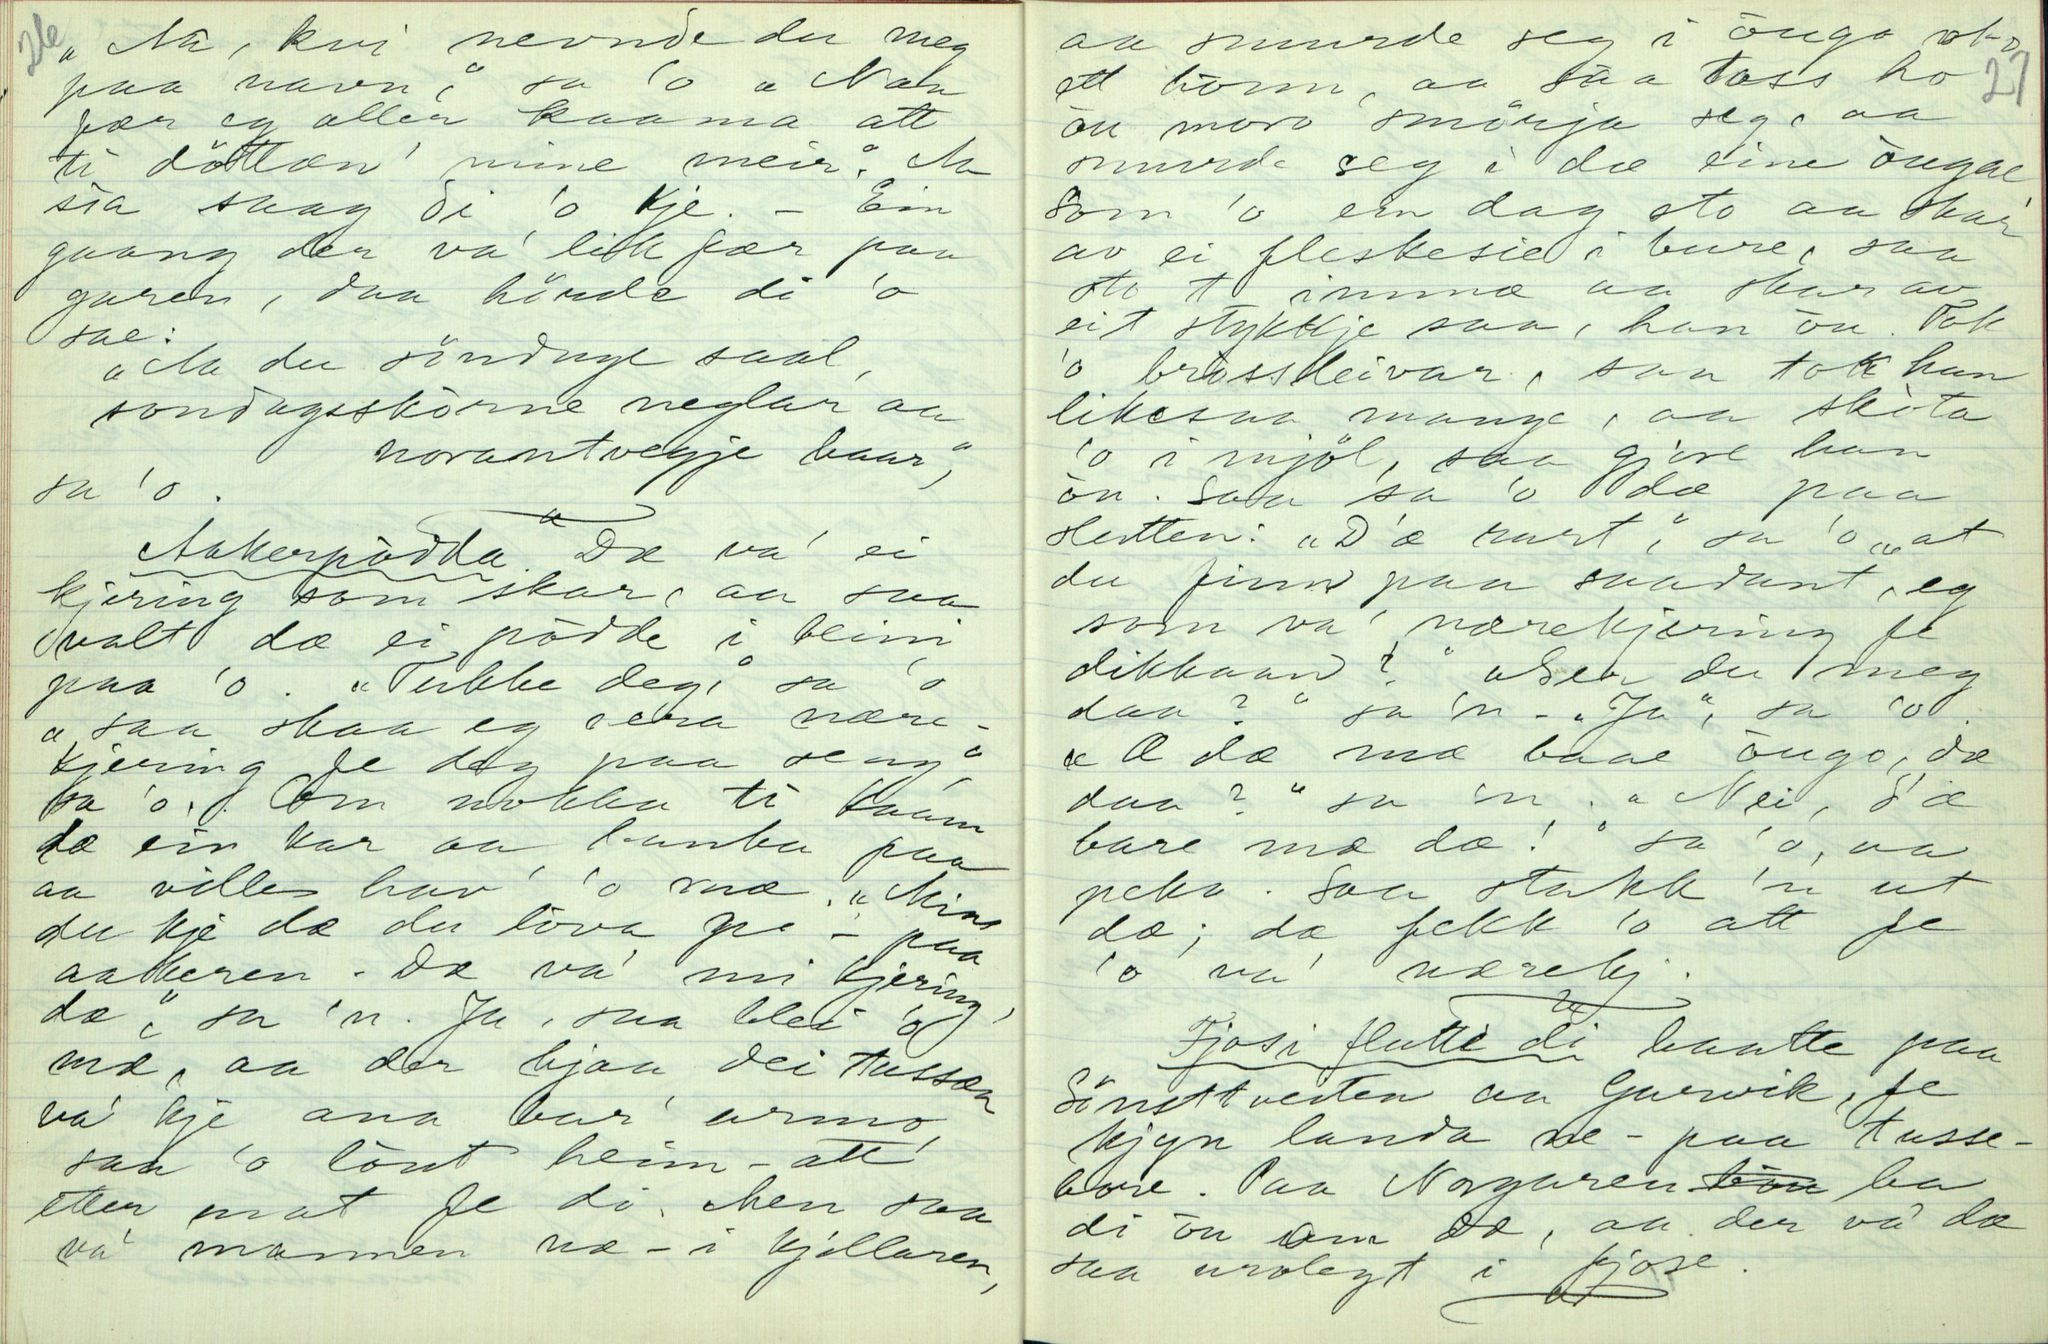 26
"Na, kvi nevnde du meg
paa navn," sa 'o "Naa
fær eg aller kaama att
ti döttæn' mine meir." Aa
sia saag di 'o kje. – Ein
gaang der va' likfær paa
garen, daa hörde di 'o
sae:
"Aa du söndags saal,
sondagsskörne neglar aa
norantvegje haar,"
sa 'o.
Aakerpödda. Dæ va' ei
kjering som skar, aa saa
valt dæ ei pödde i bleini
paa 'o. "Tukke deg," sa 'o
"saa skaa eg vera nære-
kjering fe deg paa seng"
sa 'o. Om nokka ti kaam
dæ ein kar aa banka paa
aa ville hav' 'o mæ. "Mins
du kje dæ du lova pe- paa
aakeren. Dæ va' mi kjering,
dæ," sa 'n. Ja, saa blei 'o
mæ, aa der hjaa dei tussan
va' kje ana bar' armo,
saa 'o lönt heim-att
etter mat fe di. Men saa
va' mannen næ-i kjellaren,
27
aa smurde seg i öugo
ett bönn, aa saa toss ho
öu moro' smörja seg, aa
smurde seg i dæ eine öugae
Som 'o ein dag sto aa skar
av ei fleskesie i bure, saa
sto t immæ aa skar av
eit stykkje saa, han öu. Tok
'o brössleivar, saa tok han
likesaa mange, aa sköta
'o i mjöl, saa gjore han
öu. Saa sa 'o dæ paa
slutten: "D'æ rart," sa 'o, "at
du finn paa saadant, eg
som va' nærekjering fe
dikkaan?" "Ser du meg
daa?" sa 'n – "Ja", sa 'o.
"Æ dæ mæ baae öugo, dæ
daa?" sa 'n. "Nei, d'æ
bare mæ dæ!" sa 'o, aa
peka. Saa stakk 'n ut
dæ; dæ fekk 'o att fe
'o va' nærekj.
Fjosi flutte di baatte paa
Sönsttveten aa Garvik, fe
kjyn landa ne-paa tusse-
bore. Paa Norgaren ba
di öu om dæ, aa der va' dæ
saa urolegt i fjose.